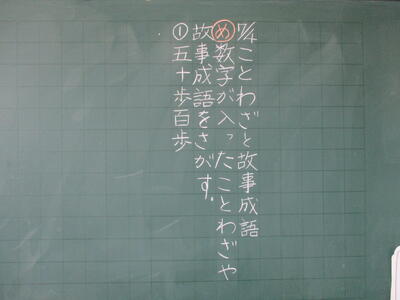 7/4 ことわざと故事成語
め 数字が入ったことわざや
故事成語をさがす。
① 五十歩百歩